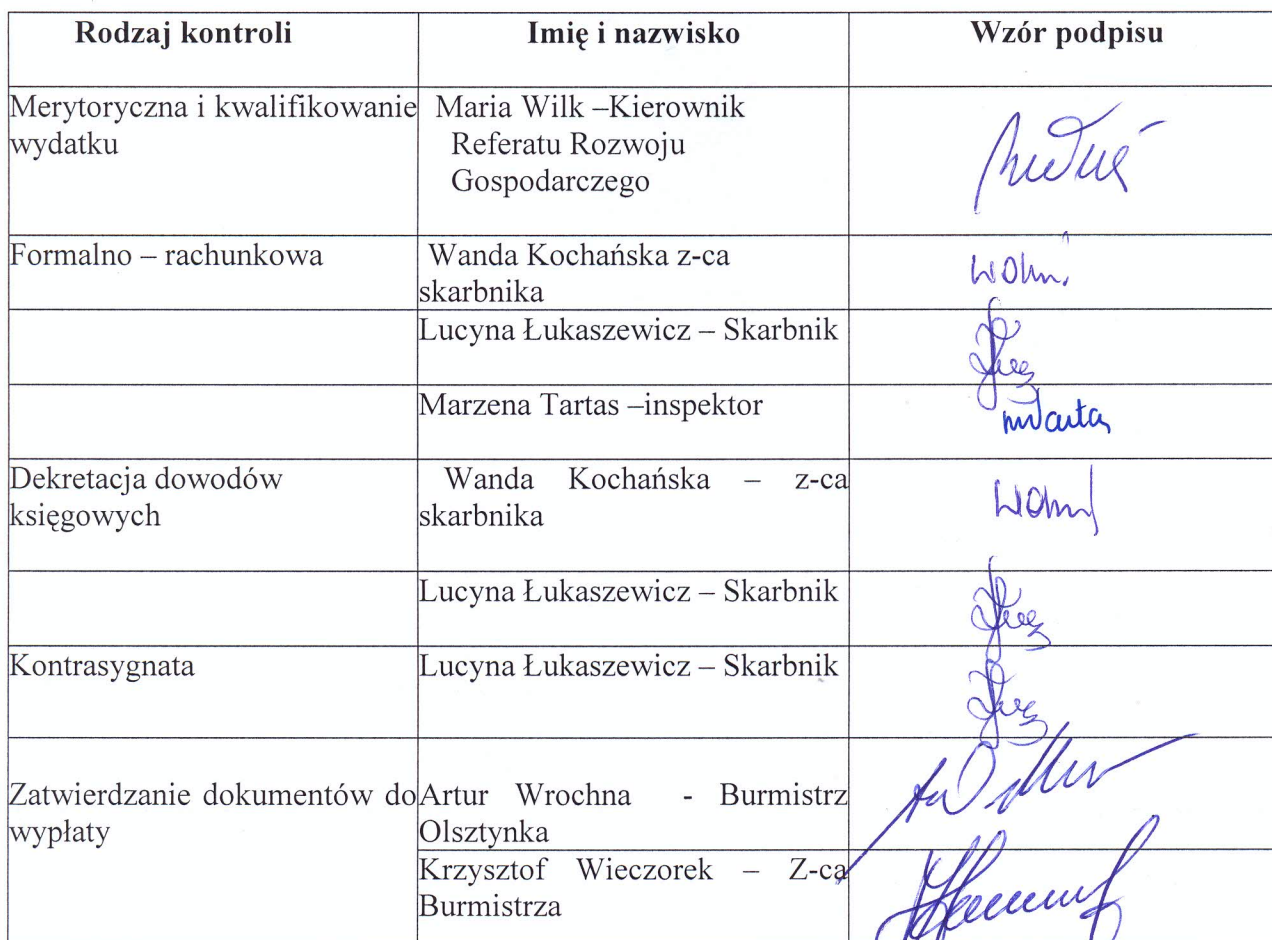 Rodzaj kontroli Imię i nazwisko Wzór podpisu
Merytoryczna i kwalifikowanie
wydatku
Maria Wilk –Kierownik
Referatu Rozwoju
Gospodarczego
Formalno – rachunkowa
Wanda Kochańska z-ca
skarbnika
Lucyna Łukaszewicz – Skarbnik
Marzena Tartas –inspektor
Dekretacja dowodów
księgowych
Wanda Kochańska – z-ca
skarbnika
Lucyna Łukaszewicz – Skarbnik
Kontrasygnata
Lucyna Łukaszewicz – Skarbnik
Zatwierdzanie dokumentów do
wypłaty
Artur Wrochna - Burmistrz
Olsztynka
Krzysztof Wieczorek – Z-ca
Burmistrza